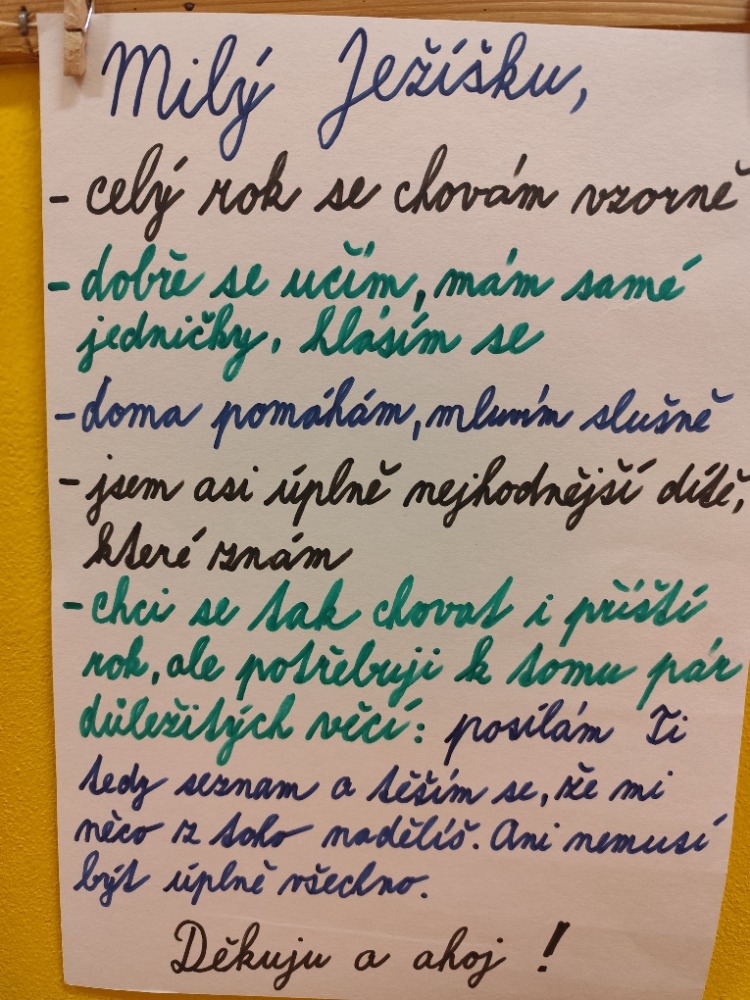 Milý Ježíšku,
- celý rok se chovám vzorně
- dobře se učím, mám samé
jedničky, hlásím se
- doma pomáhám, mluvím slušně
- jsem asi úplně nejhodnější dítě,
které znám
- chci se tak chovat i příští
rok, ale potřebuji k tomu pár
důležitých věcí: posílám Ti
tedy seznam a těším se, že mi
něco z toho nadělíš. Ani nemusí
být úplně všechno.
Děkuju a ahoj !